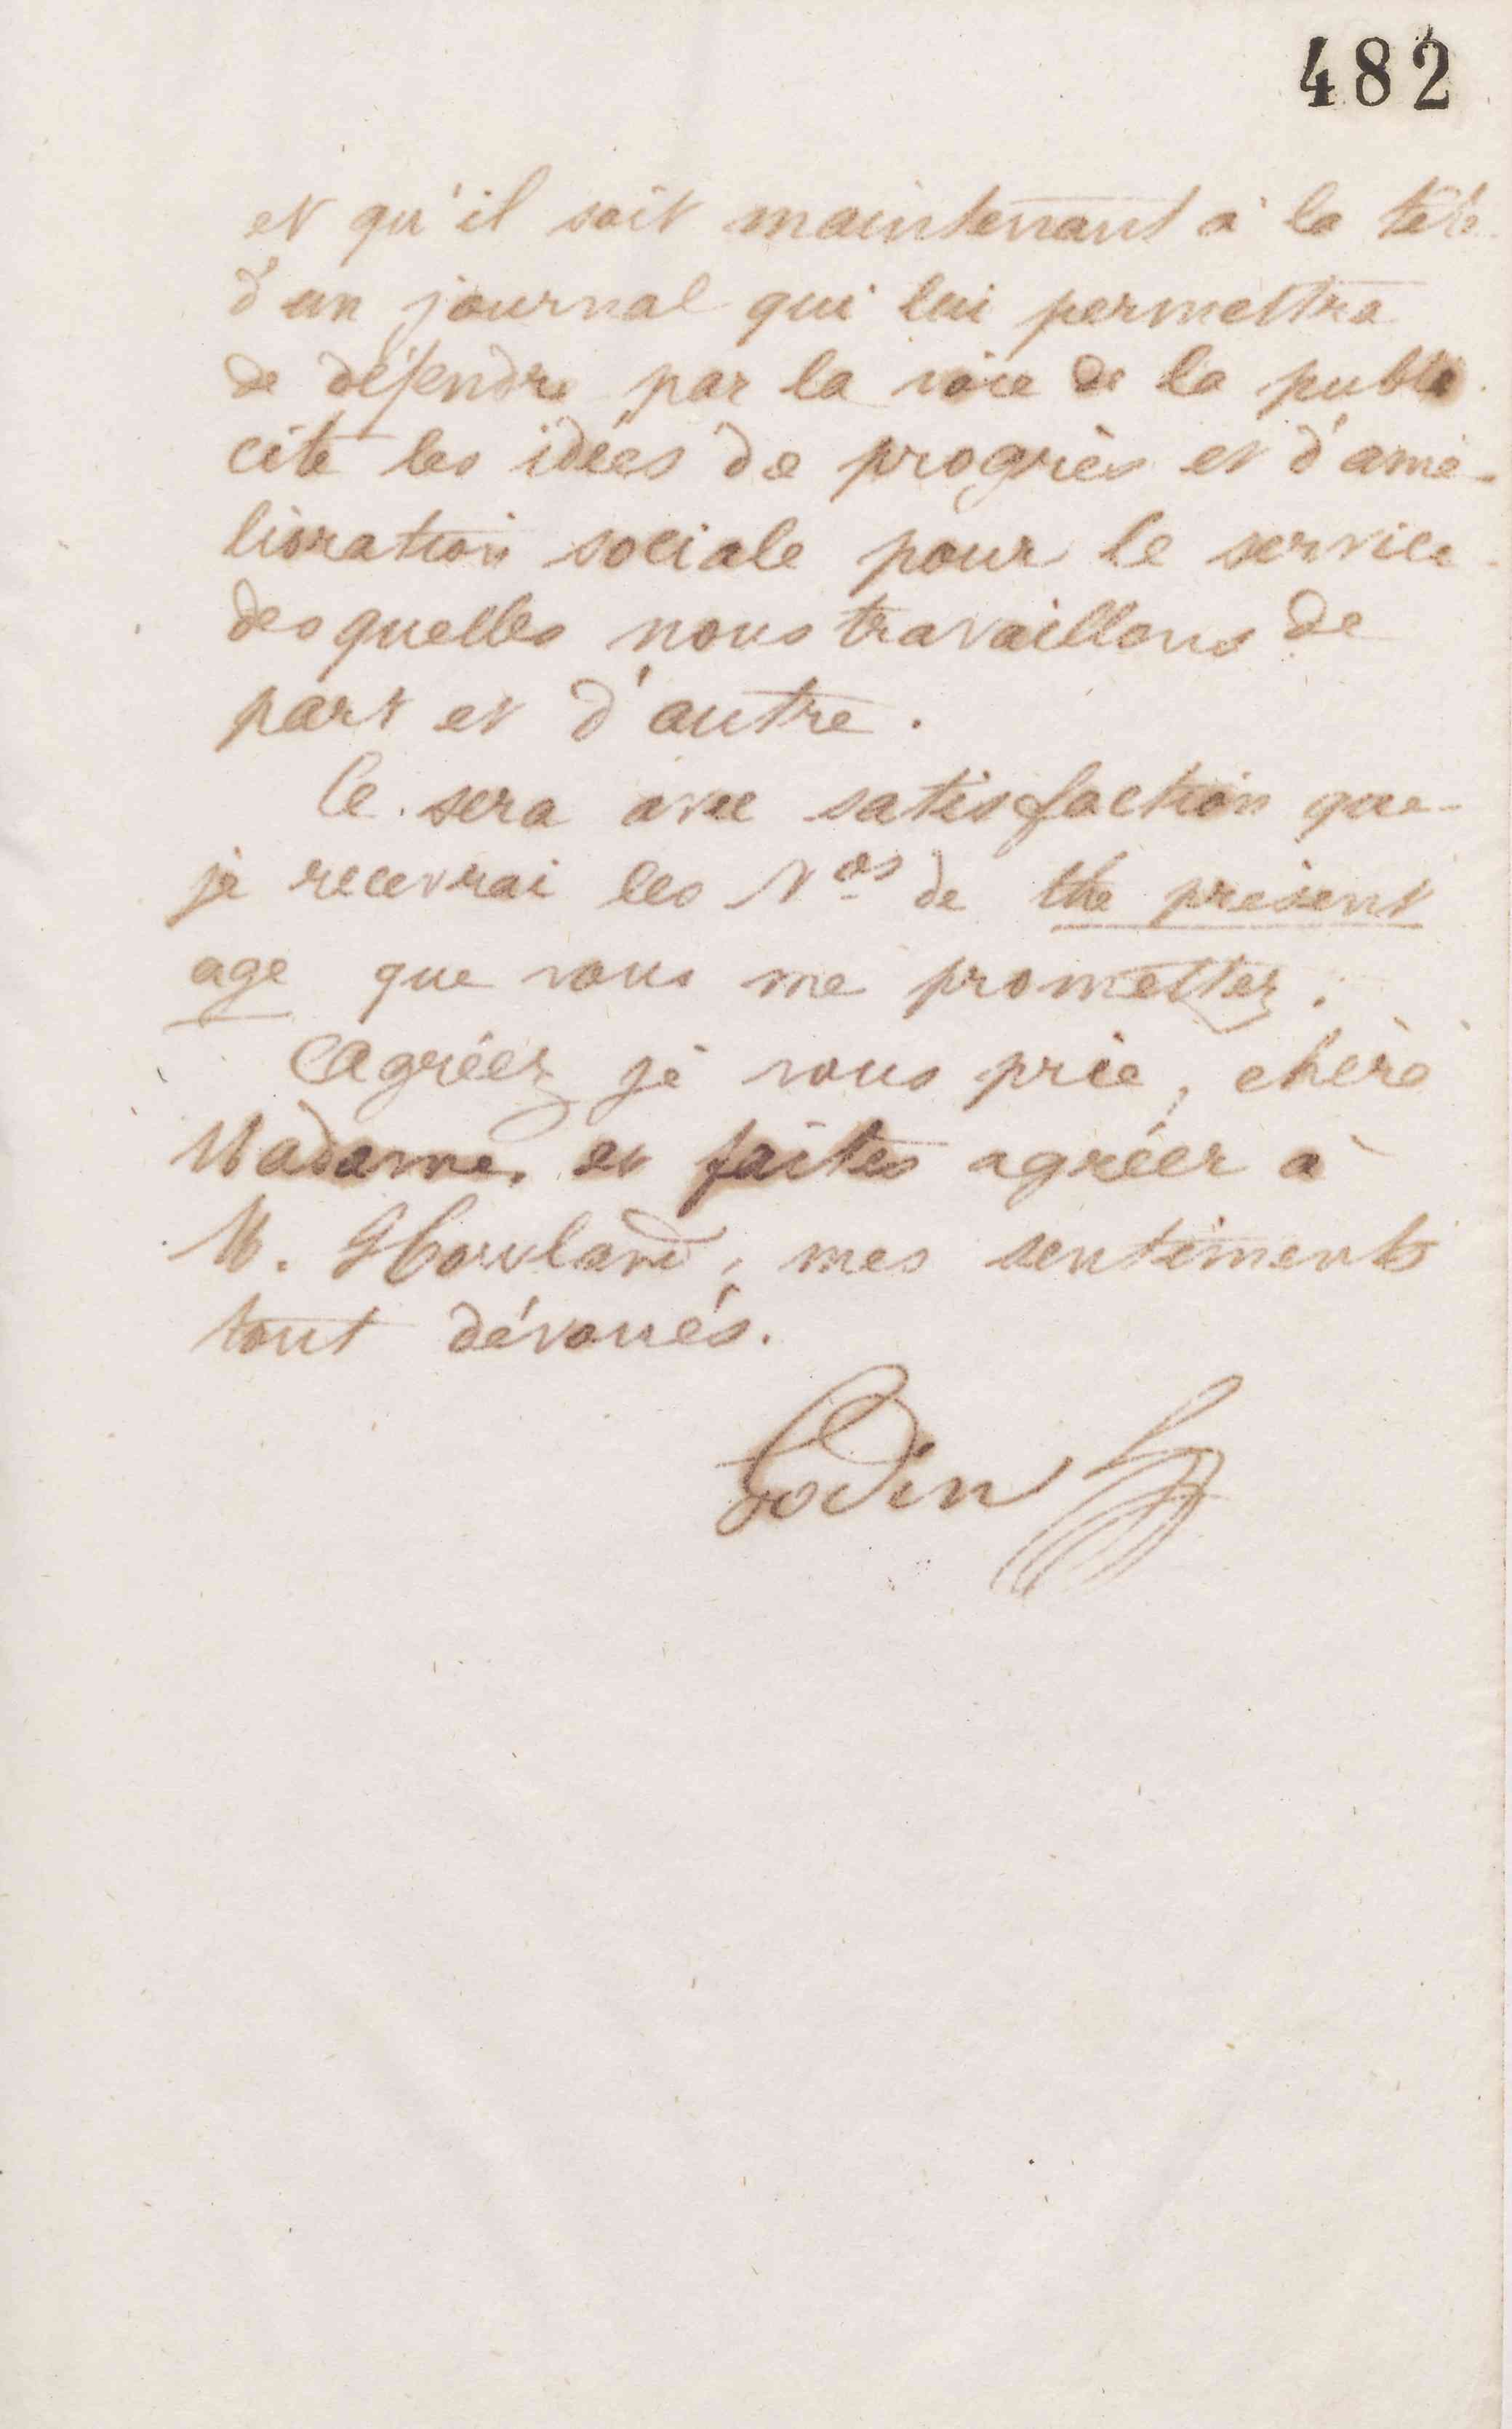 482
et qu'il soit maintenant à la tête
d'un journal qui lui permettra
de défendre par la voie de la publi
cité les idées de progrès et d'amé-
lioration sociale pour le service
desquelles nous travaillons de
part et d'autre.
Ce sera avec satisfaction que
je recevrai les Nos de the présent
age que vous me promettez.
Agréez je vous prie, chère
Madame, et faites agréer à
M. Howland, mes sentiments
tout dévoués.
Godin